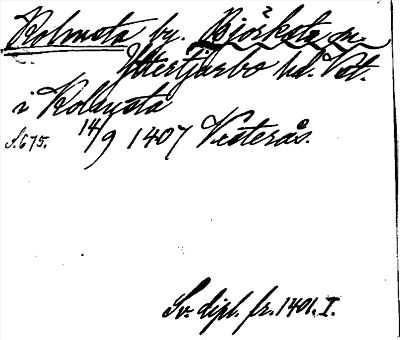 Kolmsta by. Björksta sn.
Yttertjurbo hd. Vst.
i Kolmsta
S. 675. 14/9 1407 Vesterås.
Sv. dipl. fr. 1401. I.